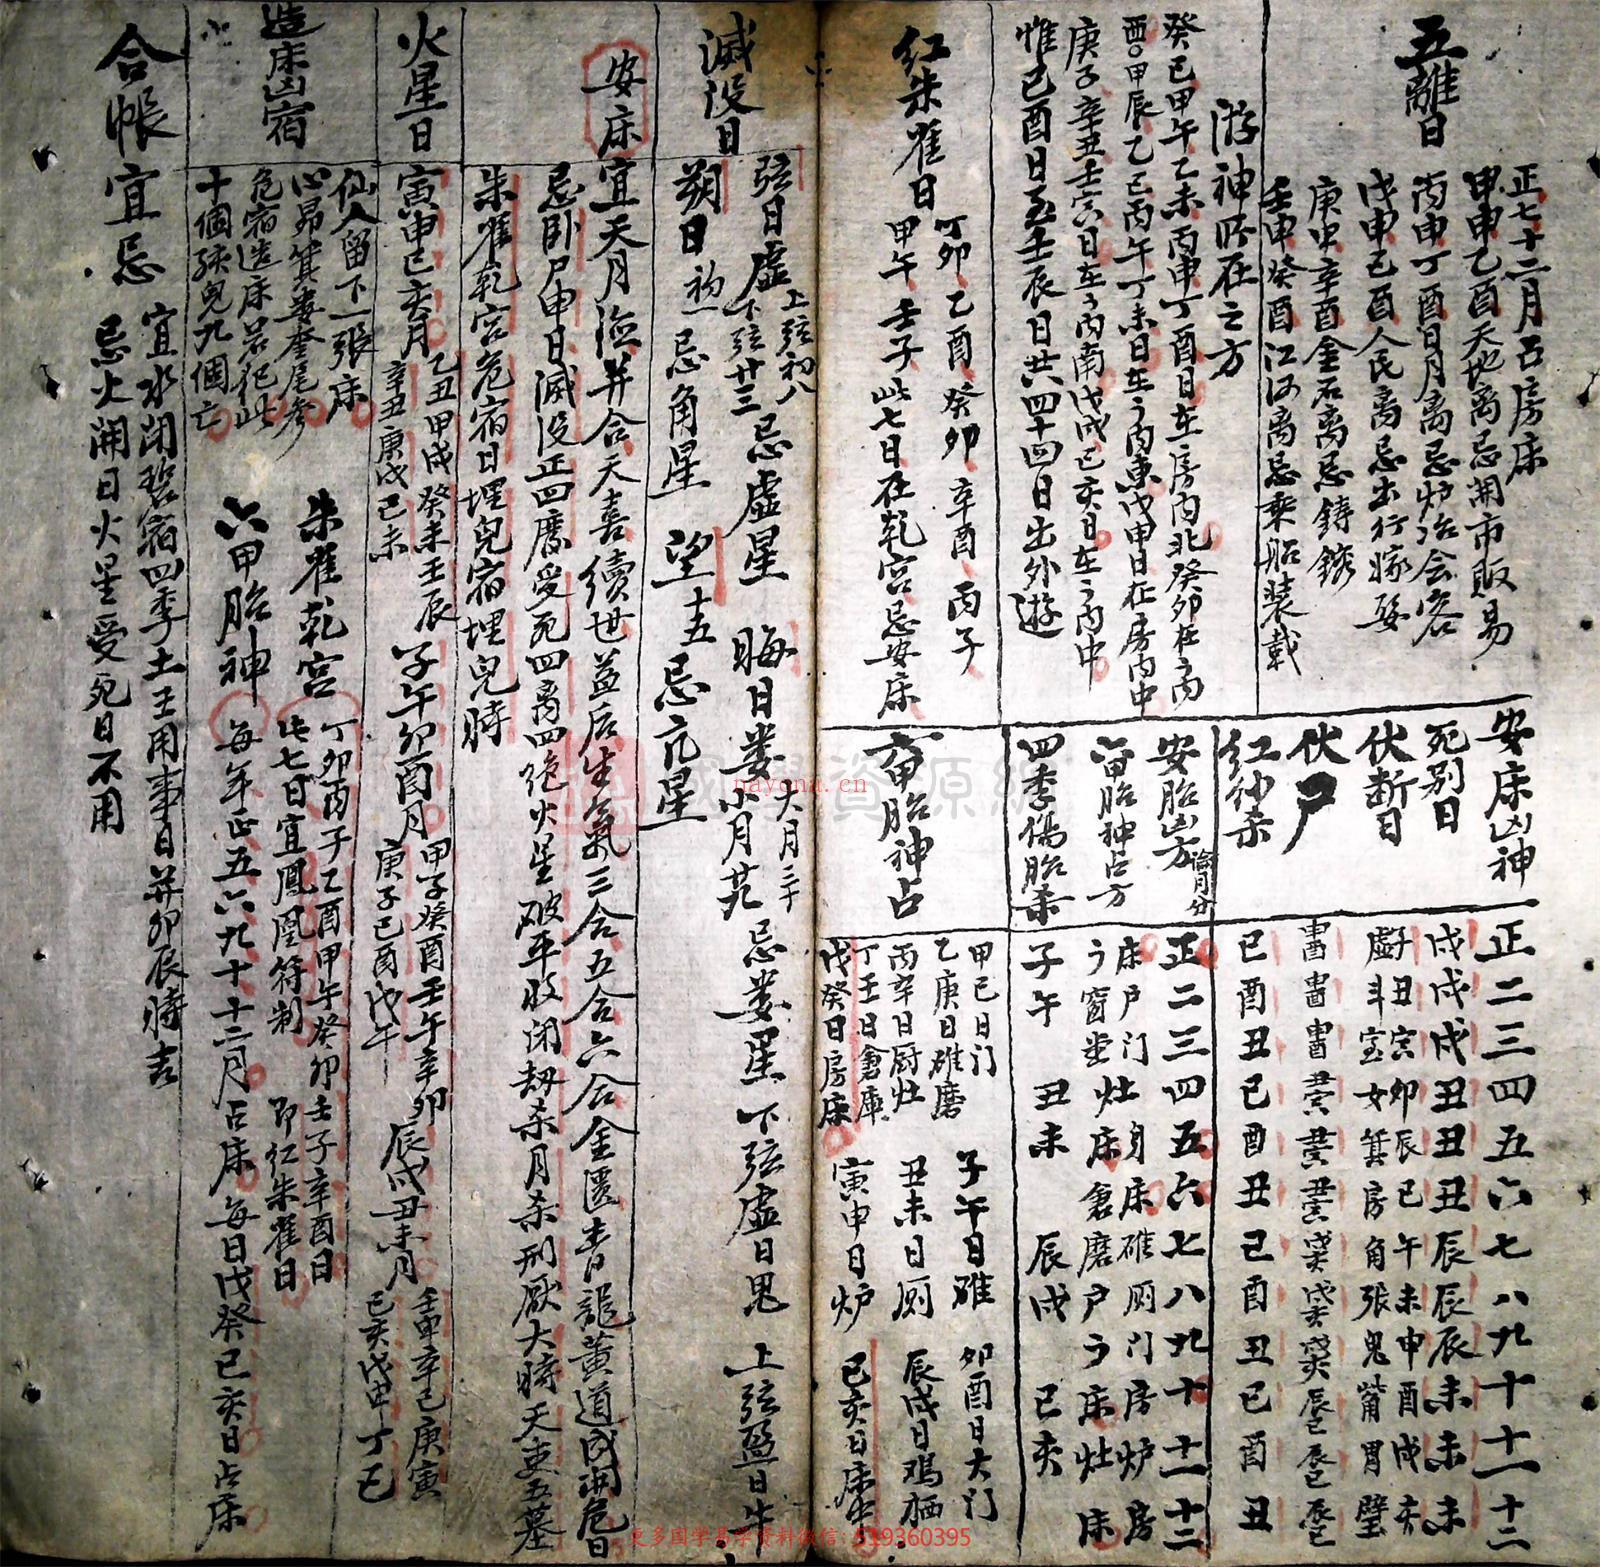 五離日
正七十二月占房床
甲申乙酉天地离忌開市販易
丙申丁酉日月离忌炉冶会客
戊申己酉人民离忌出行嫁娶
庚申辛酉金石离忌鋳
壬申癸酉江河离忌乘船装载
游神所在之方
癸巳甲午乙未丙申丁酉日在房内北癸卯在
酉甲辰乙巳丙午丁未日在内東戊申日在房内中
庚子辛丑壬寅日在内南戊戌己亥日在内中
惟己酉日至壬辰日共四十四日出外遊
红朱雀日
丁卯乙酉癸卯辛酉丙子
甲午壬子此七日在乾宫忌安床
安床凶神
正二三四五六七八九十十一十二
死别日
戌戌戌丑丑丑辰辰辰未未未
伏断日
子丑寅卯辰巳午未申酉戌亥
虚斗室女箕房角張鬼觜胃璧
伏尸
红纱杀
巳酉丑巳酉丑巳酉丑巳酉丑
安胎凶方
論月分
正二三四五六七八九十十一十二
六甲胎神占方
床户门灶身床碓厕门房炉房
窗堂灶床倉磨户床灶床
四季傷胎杀
子午 丑未 辰戌 巳亥
六甲胎神占
甲己日门
乙庚日碓磨
丙辛日厨灶
丁壬日倉庫
戊癸日房床
子午日碓
丑未日厕
寅申日炉
卯酉日大门
辰戌日鸡栖
巳亥日床
滅没日
弦日虚 上弦初八 下弦廿三 忌虚星 晦日娄 大月三十 小月廿九 忌娄星 下弦虚日鬼 上弦盈日牛
朔日 初一 忌角星 望十五 忌亢星
安床
宜天月德并合天喜續世益后生氣三合五合六合金匮青龍黄道成開危日
忌卧尸申日滅没正四廢受死四离四絶火星破平收闭劫杀月杀刑厭大時天吏五墓
朱雀乾宫危宿日埋兒宿埋兒時
火星日
寅申巳亥月 乙丑甲戌癸未壬辰 辛丑庚戌己未
子午卯酉月 甲子癸酉壬午辛卯 庚子己酉戊午
辰戌丑未月 壬申辛巳庚寅 己亥戊申丁巳
造床凶宿
仙人留下一張床
心昴箕娄奎尾参
危宿造床若犯此
十個孩兒九個亡
朱雀乾宫
丁卯丙子乙酉甲午癸卯壬子辛酉日
此七日宜鳳凰符制 即红朱雀日
六甲胎神
每年正五六九十十二月占床每日戊癸巳亥日占床
合帳宜忌
宜水闭碧宿四季土王用事日并卯辰時吉
忌火開日火星受死日不用
國學資源網
nayona.cn
更多国学易学资料微信: 519360395